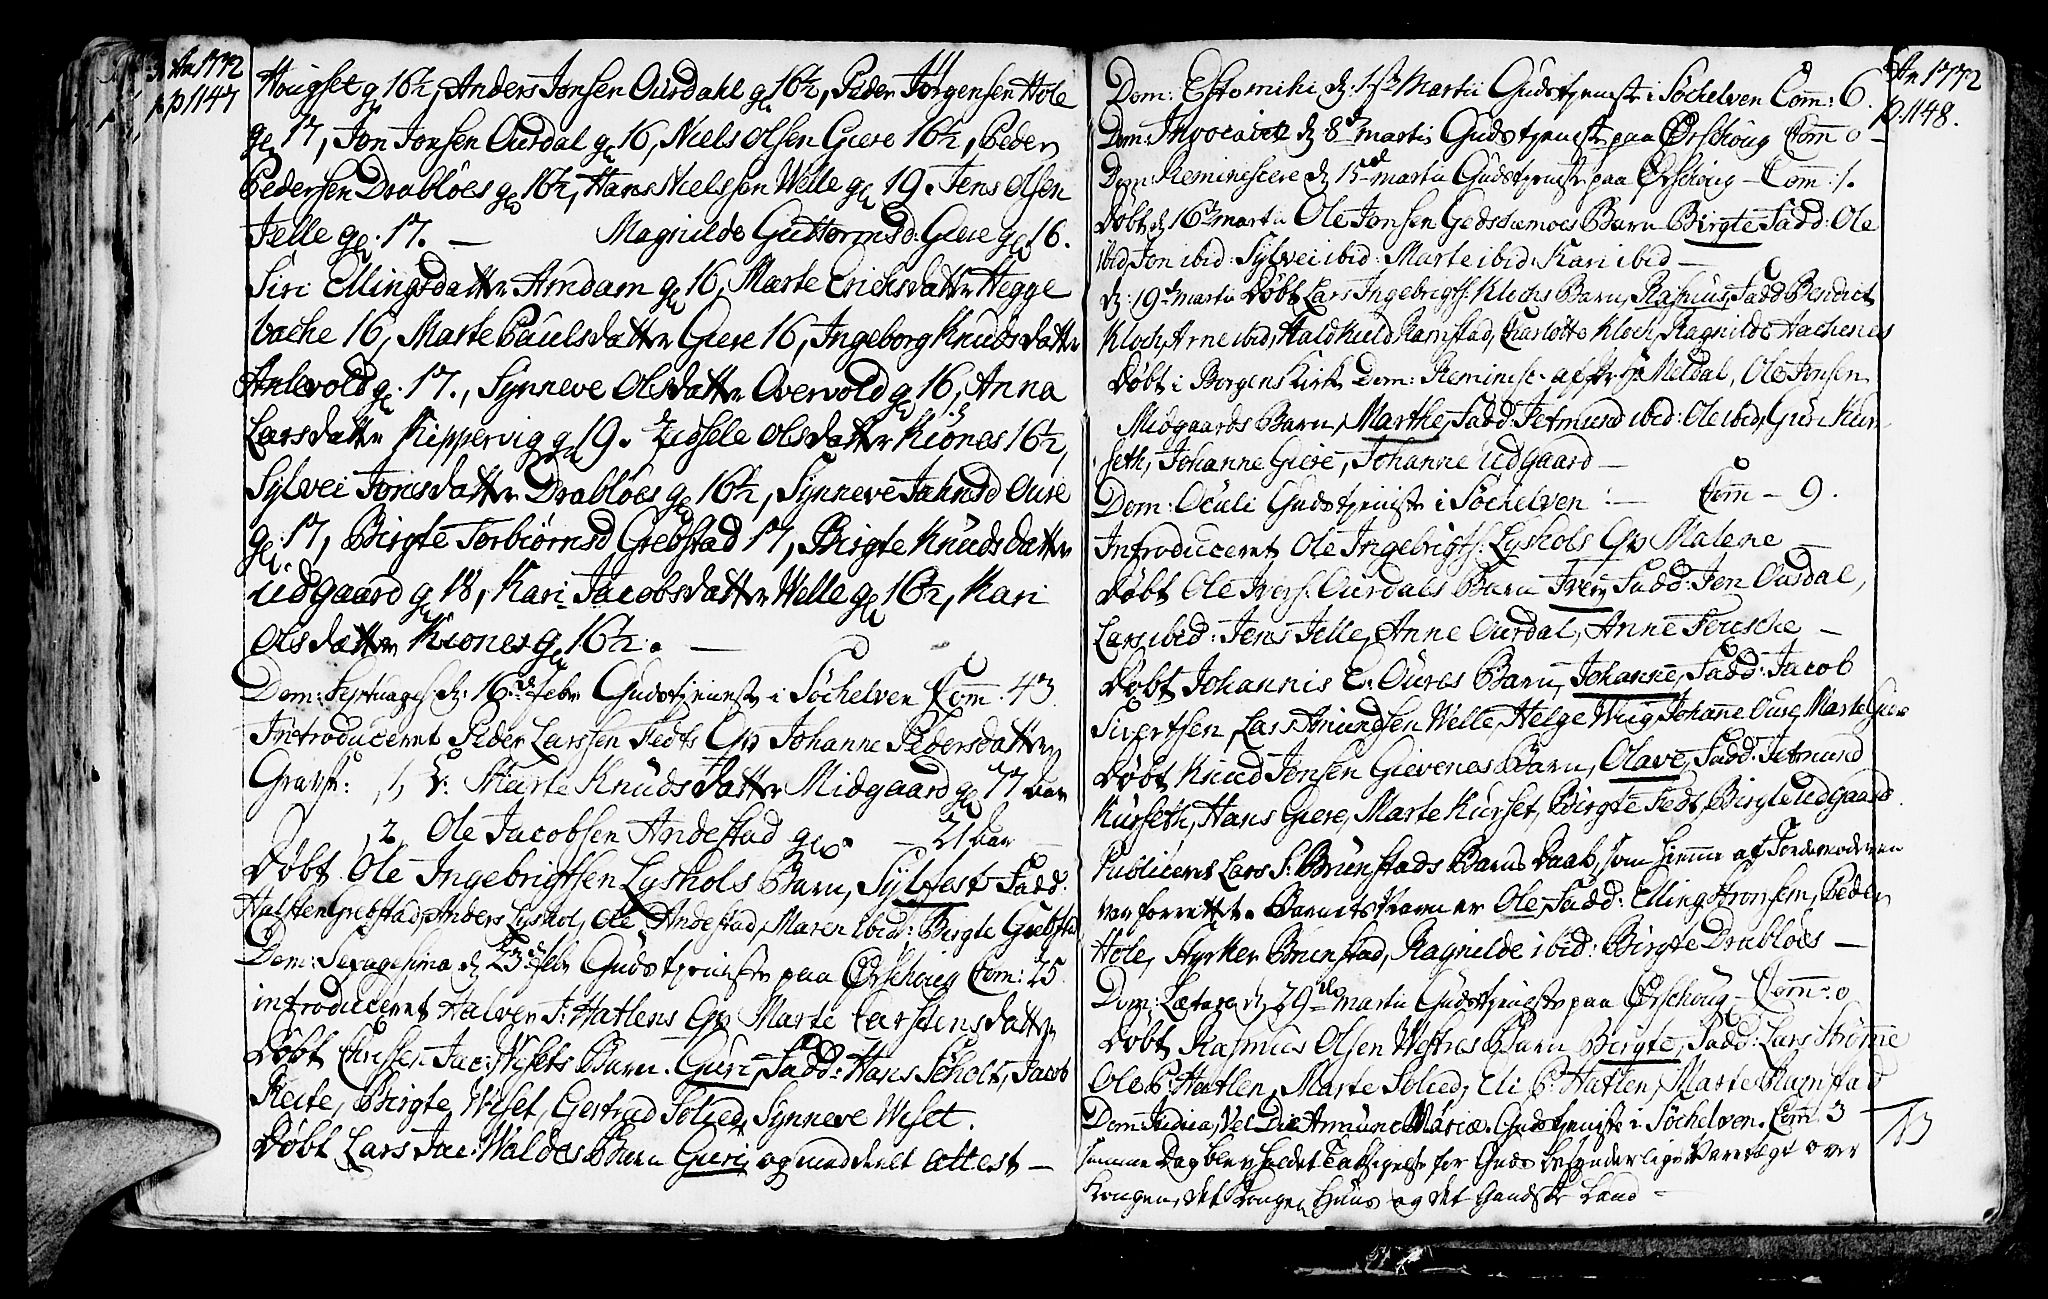 An 1772
p 1147
Hougset gl 16½, Anders Jonsen Ourdahl gl 16½, Peder Jørgensen Hole
gl 17, Jon Jonsen Ourdal gl 16, Niels Olsen Giere 16½, Peder
Pedersen Drabløes gl 16½, Hans Nielssen Welle gl 19. Jens Olsen
Jelle gl. 17. — Magnilde Guttormsd: Giere gl 16.
Siri Ellingsdatter Amdam gl 16, Marte Erichsdatter Hegge
bache 16, Marte Paulsdatter Giere 16, Ingeborg Knudsdatter
Anlevold gl. 17., Synneve Olsdatter Overvold gl 16, Anna
Larsdatter Kippervig gl 19. Zidsele Olsdatter Kiones 16½,
Sylvei Jonsdatter Drabløes gl 16½, Synneve Jahnsd Oure
gl 17, Birgte Torbiørnsd Grebstad 17, Birgte Knudsdatter
Udgaard gl 18, Kari Jacobsdatter Welle gl 16½, Kari
Olsdatter Kiones gl 16½. —
Dom: Septuages d: 16de Febr Gudstjeneste i Søchelven Com̄. 43.
Introduceret Peder Larssen Fedts Qv Johanne Pedersdatter
Gravf: 1, Marte Knudsdatter Midgaard gl 77 Aar
2, Ole Jacobsen Andestad gl. — 21 Aar —
Døbt Ole Ingebrigtsen Lyshols Barn, Sylfest Fadd:
Halsten Grebstad, Anders Lyshol, Ole Andestad, Maren ibid: Birgte Grebstad
Dom: Sexagesima d 23de Febr Gudstjeneste paa Ørschoug Com: 25.
introduceret Halver J: Hatlens Qv Marte Carstensdatter
Døbt Christen Jac: Wisets Barn. Guri, Fadd: Hans Scholt, Jacob
Reite, Birgte Wiset, Gertrud Solied, Synneve Wiset.
Døbt Lars Jac: Waldes Barn Guri og meddeelt Attest —
An 1772
p. 1148.
Dom: Estomihi d: 1ste Martii Gudstjeneste i Søchelven Com̄: 6.
Dom: Invocavit d 8de martii Gudstjeneste paa Ørschoug Com̄ 0 —
Dom: Reminiscere d 15de martii Gudstjeneste paa Ørschoug — Com: 1.
Døbt d 16de martii Ole Jonsen Barn Birgte Fadd: Ole
ibid Jon ibid: Sylvei ibid: Marte ibid: Kari ibid —
d: 19de martii Døbt Lars Ingebrigts: Klochs Barn, Rasmus, Fadd Benedict
Kloch, Arne ibid, Haldkuld Ramstad, Charlotte Kloch, Ragnilde Aachenes
Døbt i Borgens Kirk Dom: Reminisc. af Hr Meldal, Ole Jonsen
Midgaards Barn, Marthe, Fadd: Jetmund ibid: Ole ibid, Guri Kur
seth, Johanne Giere, Johanne Udgaard —
Dom: Oculi Gudstjeneste i Søchelven : — Com̄ — 9.
Introduceret Ole Ingebrigts: Lyshols Qv Malene —
Døbt Ole Ivers. Ourdals Barn Iver, Fadd: Jon Ourdal,
Lars ibid: Jens Jelle, Anne Ourdal, Anne Feusche —
Døbt Johannis E: Oures Barn, Johanne, Fadd: Jacob
Sivertsen, Lars Amundsen Welle, Helge Wiig, Johanne Oure, Marte Giere
Døbt Knud Jonsen Gievenes Barn, Olave, Fadd: Jetmund
Kurseth, Hans Giere, Marte Kurset, Birgte Fedt, Birgte Udgaard.
Publiceret Lars S: Brunstads Barns Daab, som hiemme af Jordemoderen
var forrettet. Barnets Navn er Ole, Fadd: Elling Strømsem, Peder
Hole, Styrker Brunstad, Ragnilde ibid: Birgte Drabløes —
Dom: Lætare d 29de martii Gudstjeneste paa Ørschoug — Com̄: 0
Døbt Rasmus Olsen Westres Barn Birgte, Fadd: Lars Strømme
Ole P: Hatlen, Marte Solied, Eli P: Hatlen, Marte Ramstad
Dom: Judica, vel Die Annunc Mariæ. Gudstjeneste i Søchelven. Com̄ 3
samme Dag blev holdet Taksigelse for Guds besynderlige Varetegt over
Kongen, det Kongel Huus og det Gandske Land —
13